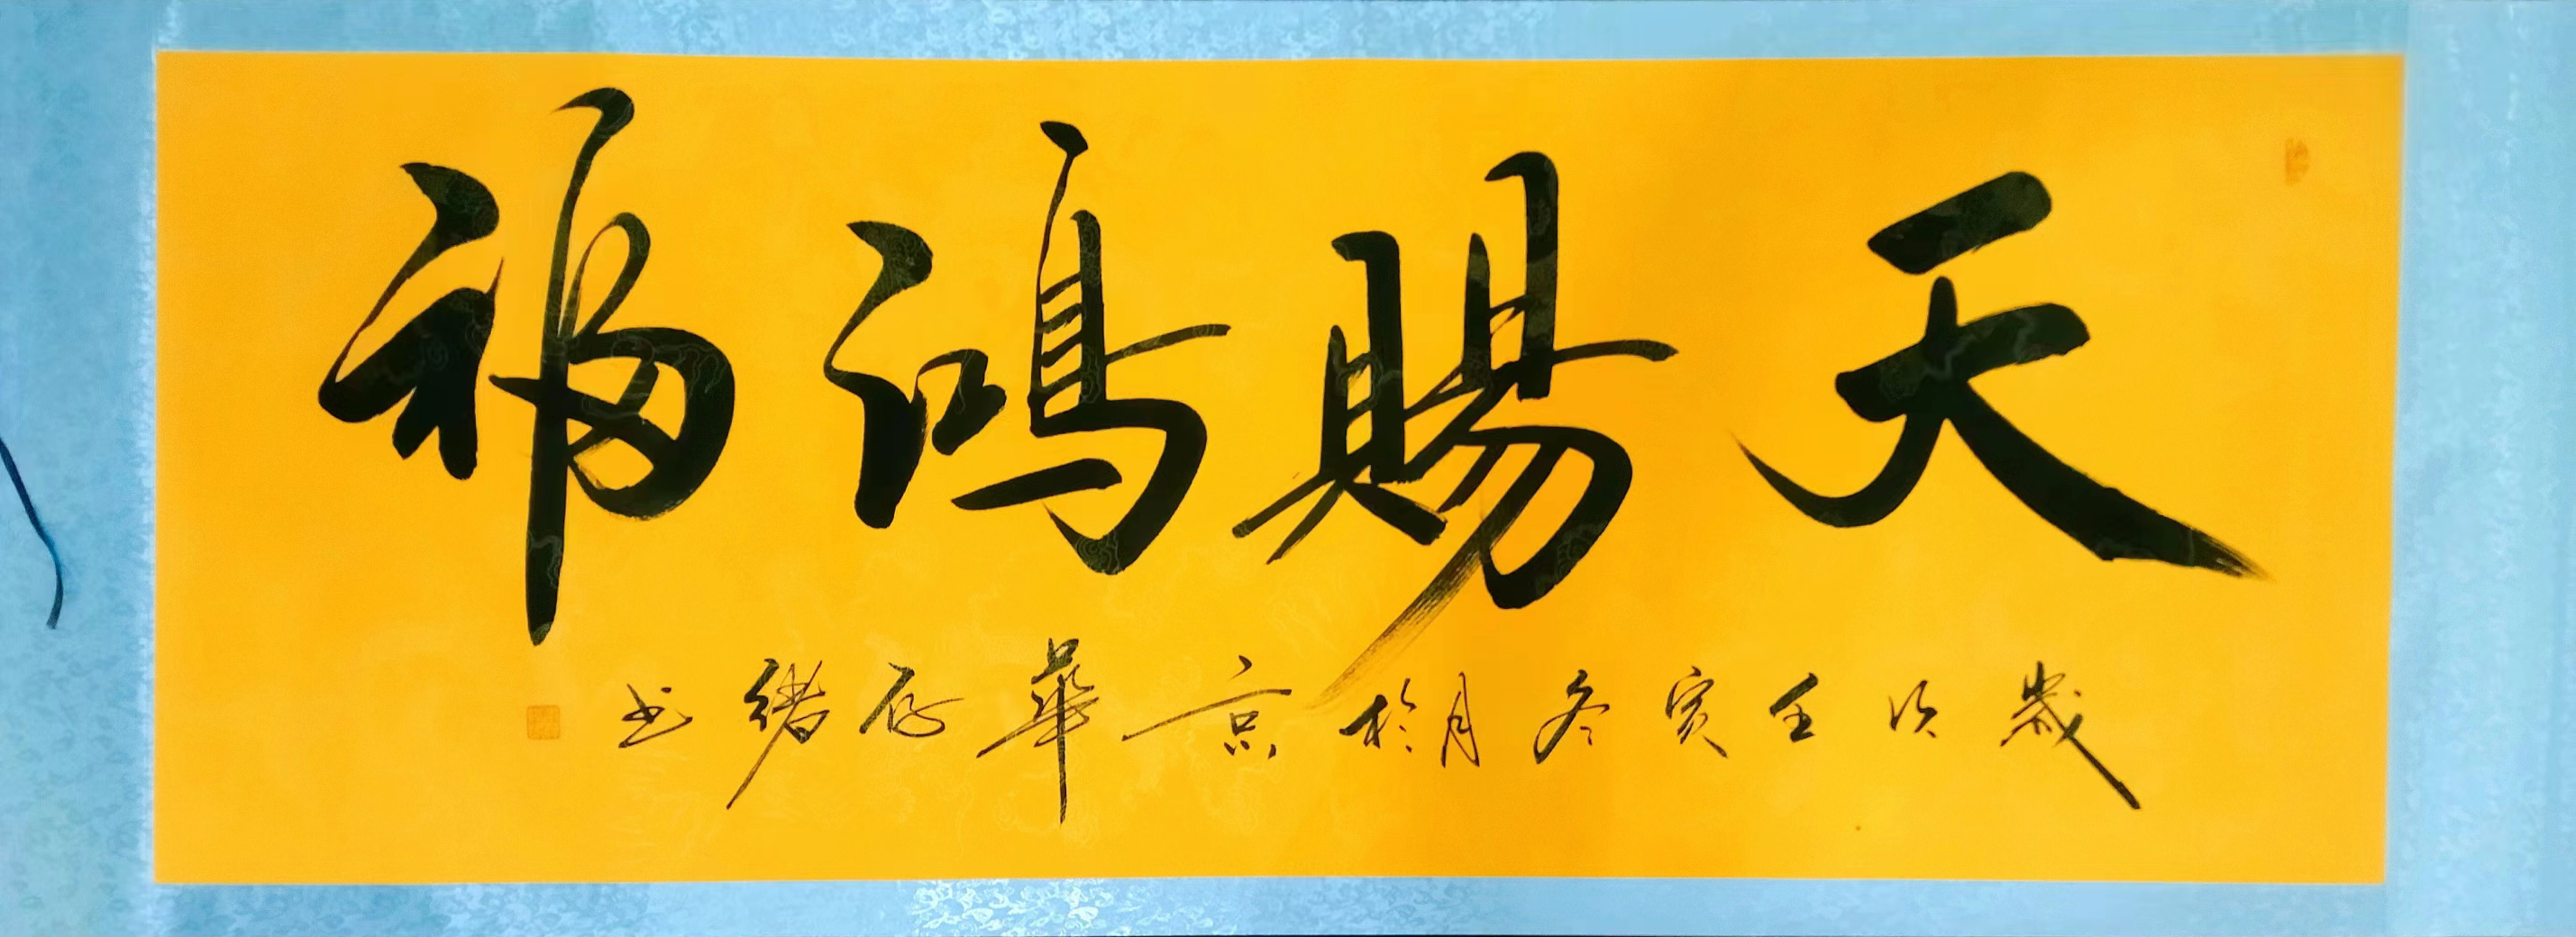 天賜鴻福
歲次壬寅冬月於京華存緒书